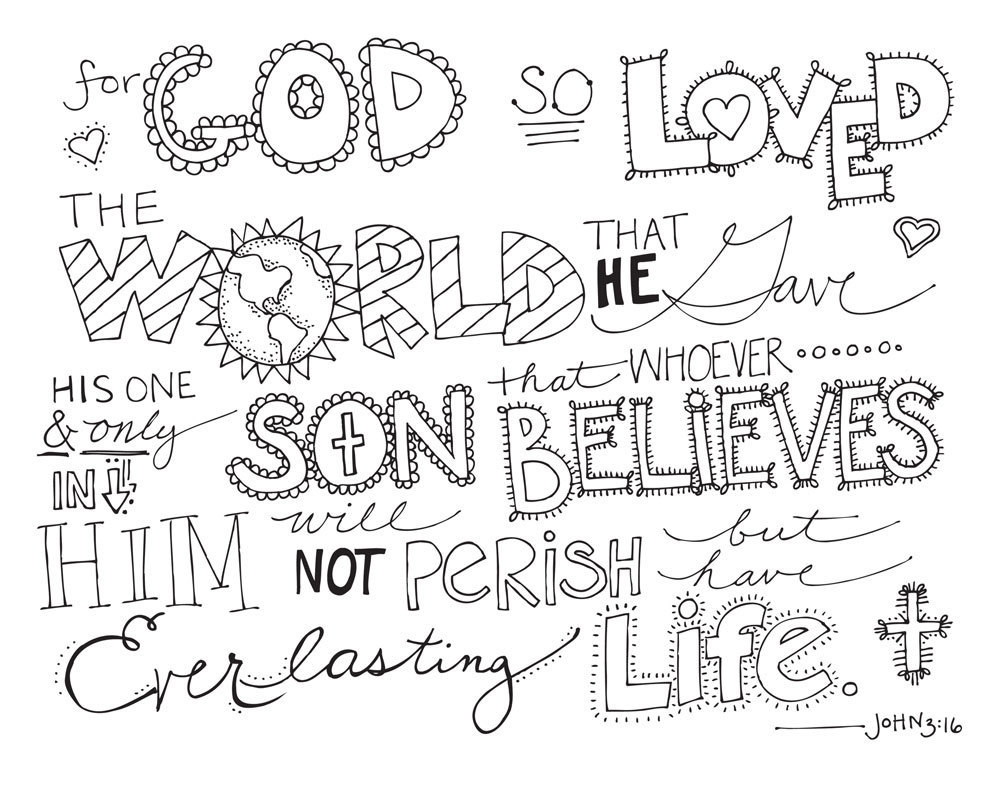 for GOD so LOVED
THE WORLD THAT HE Gave
HIS ONE & only SON that WHOEVER BELIEVES
IN HIM will NOT PERISH but have
Everlasting Life.
JOHN 3:16